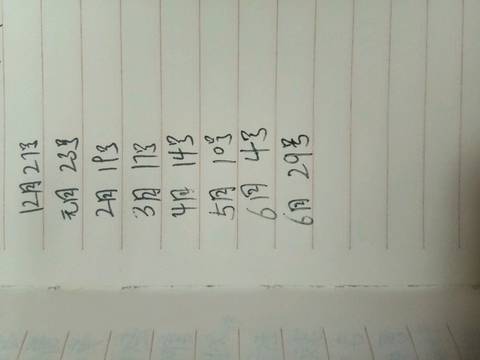 12月27号
元月23号
2月19号
3月17号
4月14号
5月10号
6月4号
6月29号